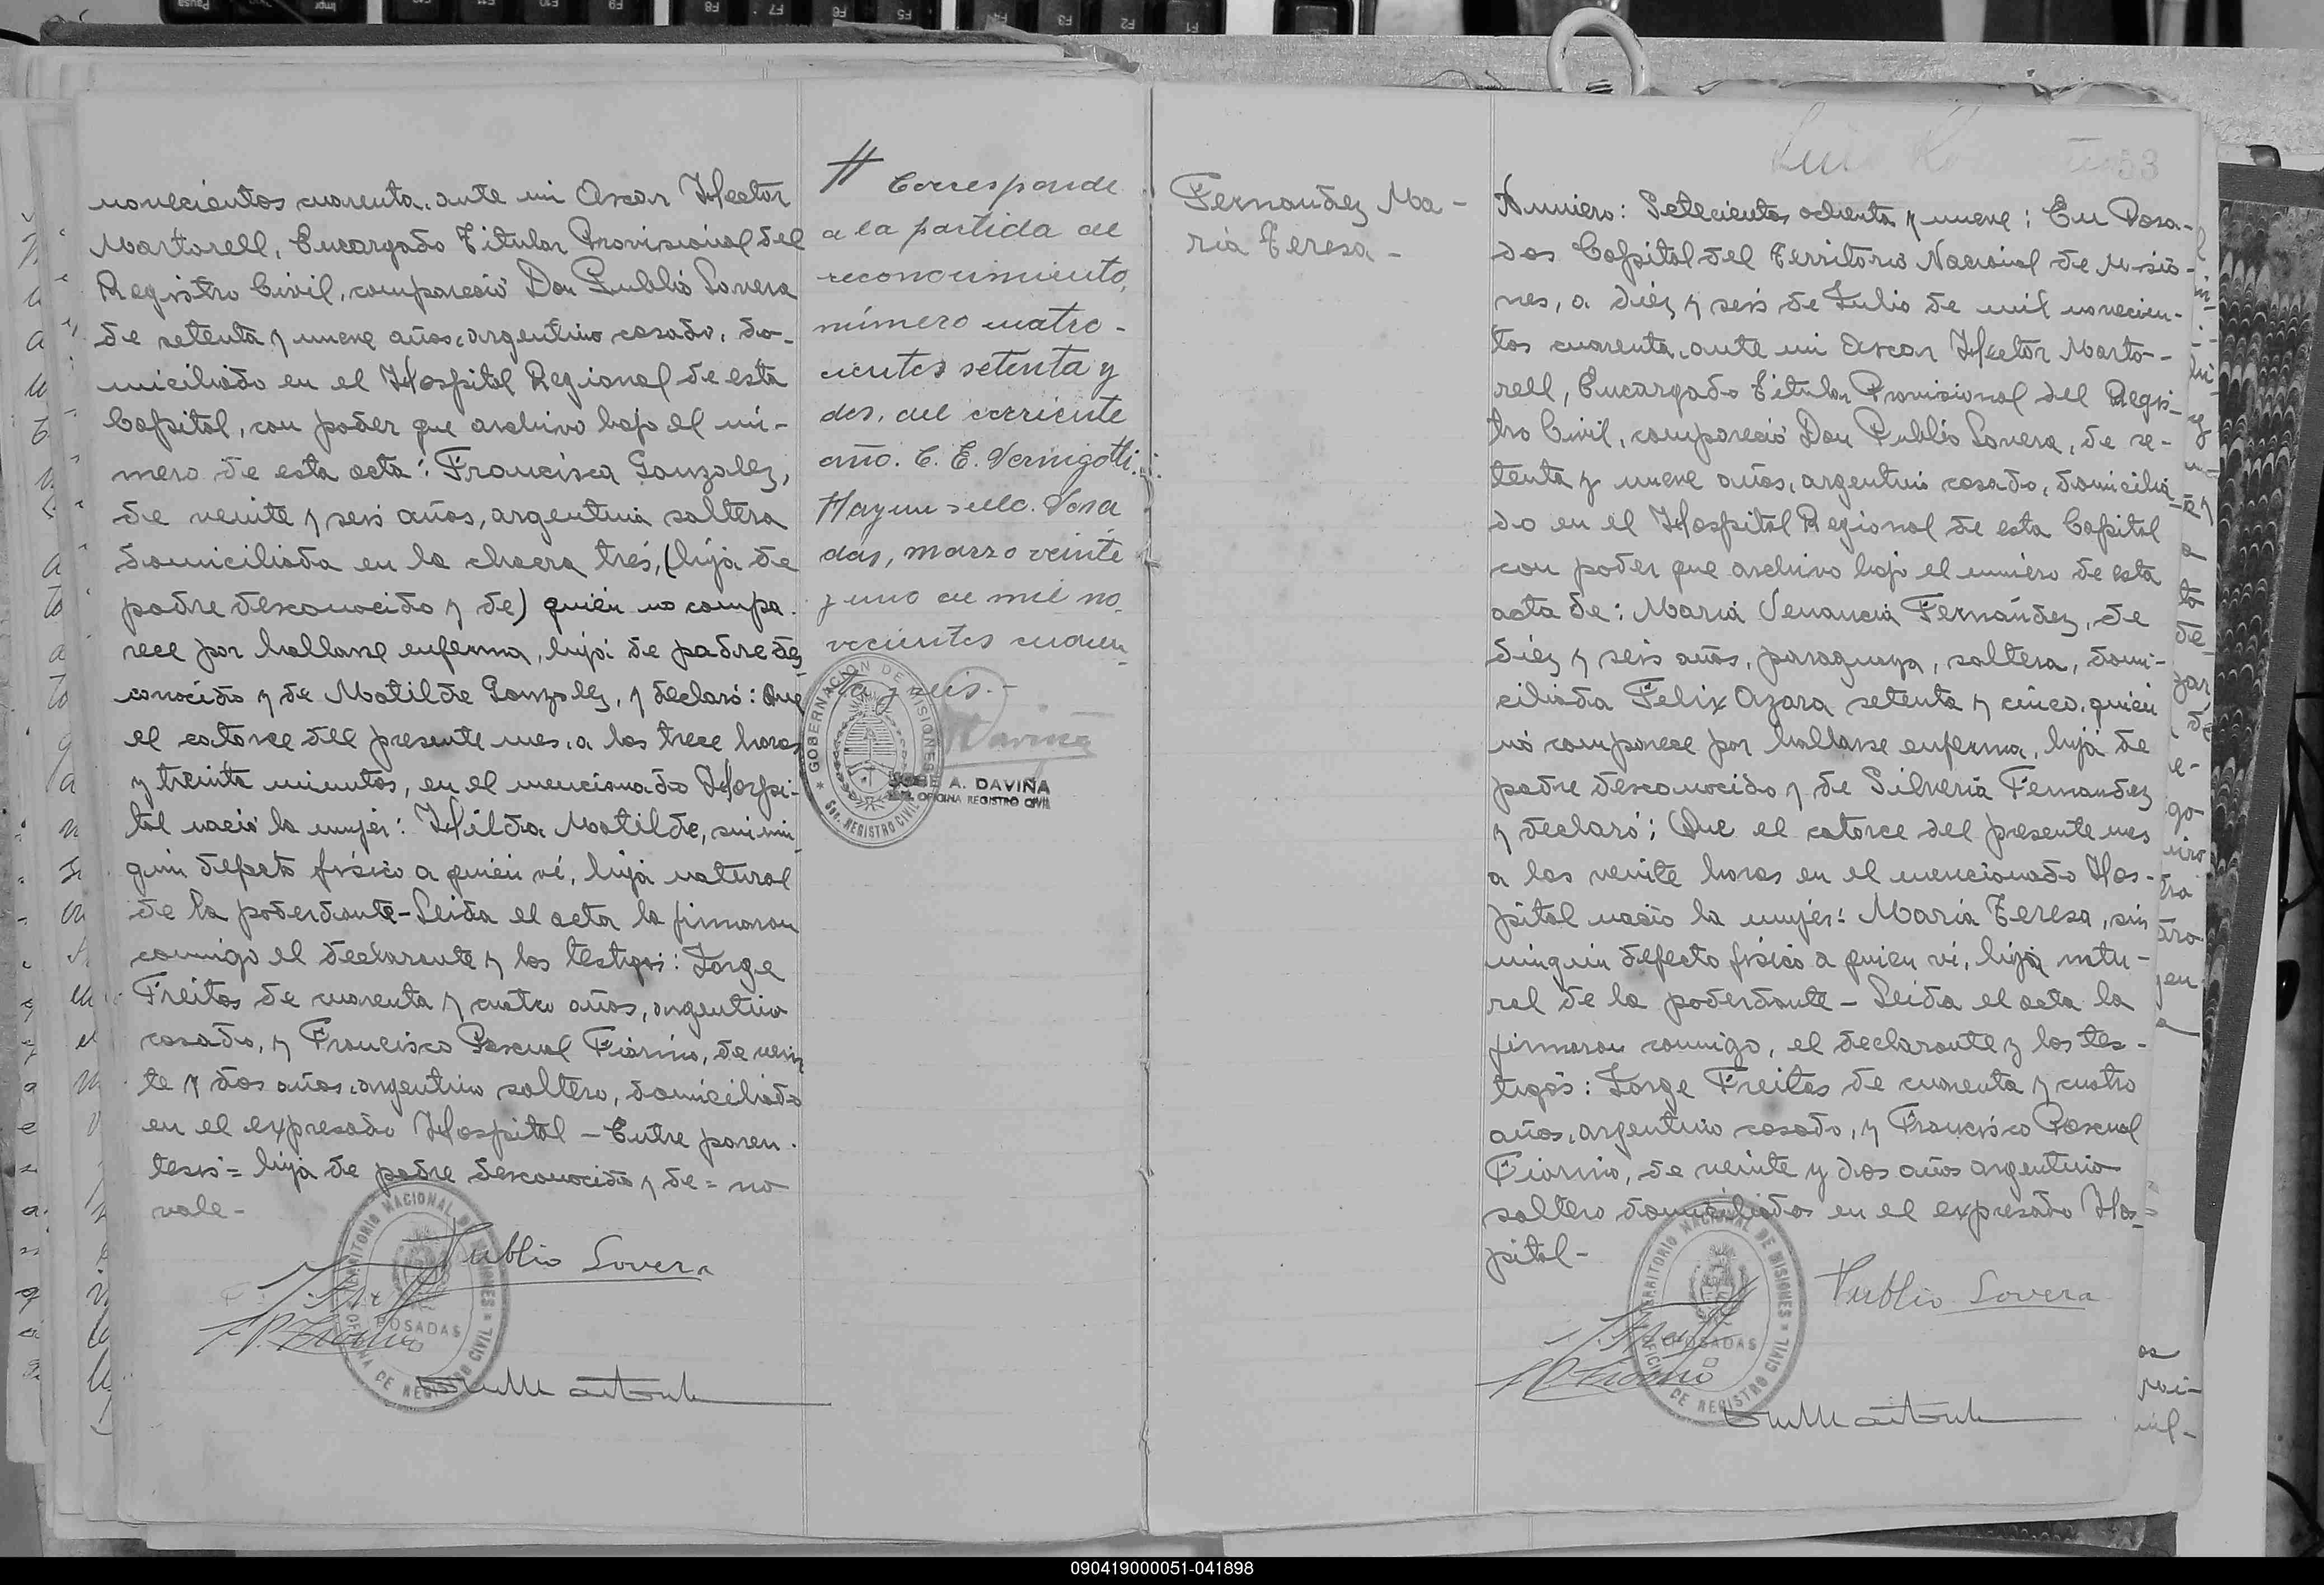 novecientos cuarenta, ante mi Oscar Hector
Martorell, Encargado Titular Provisional del
Registro Civil, compareció Don Publio Lovera
de setenta y nueve años, argentino casado, do-
miciliado en el Hospital Regional de esta
Capital, con poder que archivo bajo el nú-
mero de esta acta: Francisca Gonzalez,
de veinte y seis años, argentina soltera
domiciliada en la chacra tres, (hija de
padre desconocido y de) quién no compa-
rece por hallarse enferma, hija de padre des
conocido y de Matilde Gonzalez, y declaró: Que
el catorce del presente mes, a las trece horas
y treinta minutos, en el mencionado Hospi-
tal nació la mujer: Hilda Matilde, sin nin
gún defecto físico a quién ví, hija natural
de la poderdante - Leida el acta la firmaron
conmigo el declarante y los testigos: Jorge
Freitas de cuarenta y cuatro años, argentino
casado, y Francisco Pascual Fiorino, de vein
te y dos años, argentino soltero, domiciliado
en el expresado Hospital - Entre paren-
tesis = hija de padre desconocido y de = no
vale -
Publio Lovera
TERRITORIO NACIONAL DE MISIONES
POSADAS
OFICINA DE REGISTRO CIVIL
# Corresponde
a la partida de
reconocimiento,
número cuatro-
cientos setenta y
dos, del corriente
año. C. E. Vernigotti.
Hay un sello. Posa
das, marzo veinte
y uno de mil no-
vecientos cuaren-
ta y seis.-
GOBERNACION DE MISIONES
REGISTRO CIVIL
JOSE A. DAVIÑA
OFICINA REGISTRO CIVIL
Fernandez Ma-
ria Teresa -
53
Número: Setecientos ochenta y nueve: En Posa-
das Capital del Territorio Nacional de Misio-
nes, a diéz y seis de Julio de mil novecien-
tos cuarenta, ante mi Oscar Hector Marto-
rell, Encargado Titular Provisional del Regis-
tro Civil, compareció Don Publio Lovera, de se-
tenta y nueve años, argentino casado, domicilia
do en el Hospital Regional de esta Capital
con poder que archivo bajo el número de esta
acta de: Maria Venancia Fernández, de
diéz y seis años, paraguaya, soltera, domi-
ciliada Felix Azara setenta y cinco, quién
nó comparece por hallarse enferma, hija de
padre desconocido y de Silveria Fernandez
y declaró: Que el catorce del presente mes
a las veinte horas en el mencionado Hos-
pital nació la mujer: Maria Teresa, sin
ningún defecto físico a quien ví, hija natu-
ral de la poderdante - Leida el acta la
firmaron conmigo, el declarante y los tes-
tigos: Jorge Freitas de cuarenta y cuatro
años, argentino casado, y Francisco Pascual
Fiorino, de veinte y dos años argentino
soltero domiciliados en el expresado Hos-
pital -
Publio Lovera
TERRITORIO NACIONAL DE MISIONES
POSADAS
OFICINA DE REGISTRO CIVIL
090419000051-041898